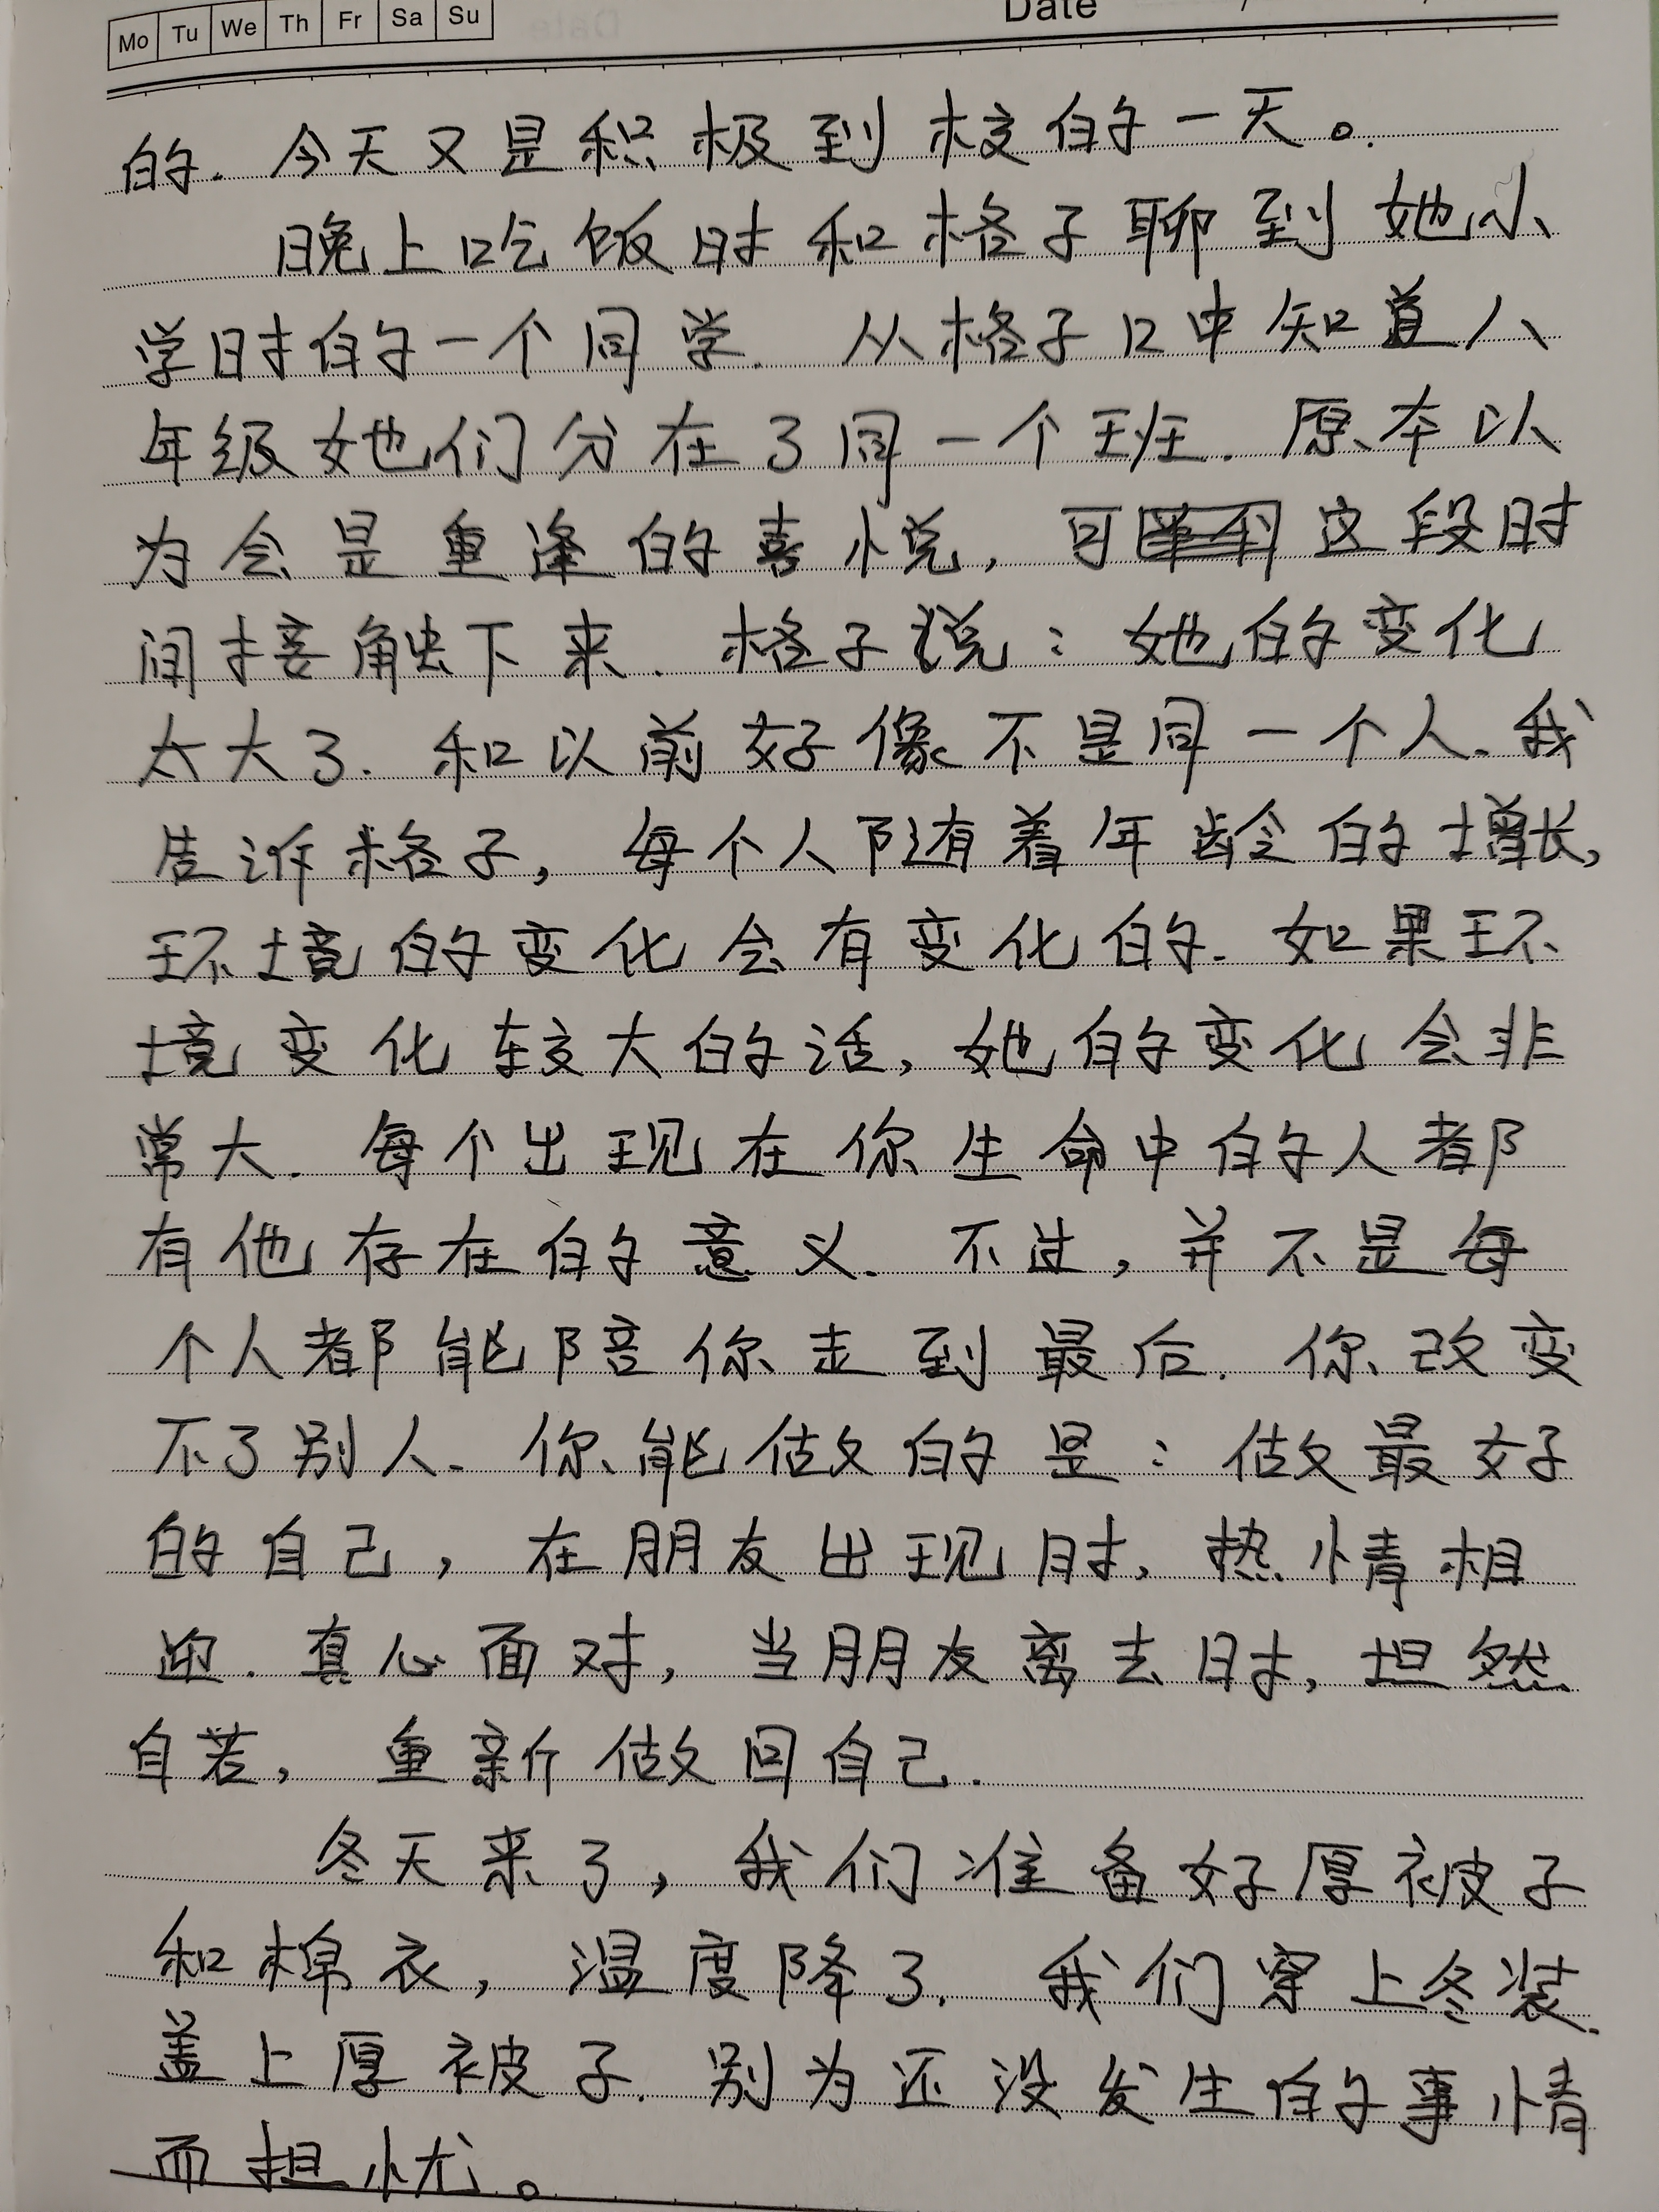 Mo Tu We Th Fr Sa Su Date
的. 今天又是积极到校的一天。
晚上吃饭时和格子聊到她小
学时的一个同学. 从格子口中知道八
年级她们分在了同一个班. 原本以
为会是重逢的喜悦, 可这段时
间接触下来. 格子说: 她的变化
太大了. 和以前好像不是同一个人. 我
告诉格子, 每个人随着年龄的增长,
环境的变化会有变化的. 如果环
境变化较大的话, 她的变化会非
常大. 每个出现在你生命中的人都
有他存在的意义. 不过, 并不是每
个人都能陪你走到最后. 你改变
不了别人. 你能做的是: 做最好
的自己, 在朋友出现时, 热情相
迎. 真心面对, 当朋友离去时, 坦然
自若, 重新做回自己.
冬天来了, 我们准备好厚被子
和棉衣, 温度降了. 我们穿上冬装.
盖上厚被子. 别为还没发生的事情
而担忧。